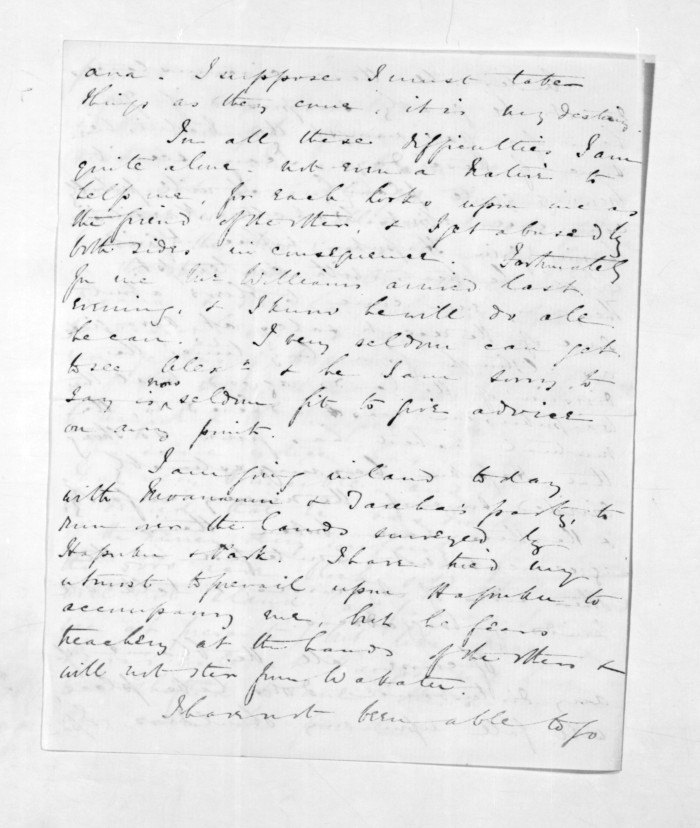 ana. I suppose I must take
things as they come, it is my destiny.
In all these difficulties I am
quite alone. not even a Native to
help me, for each looks upon me as
the friend of the other, & I get abused by
both sides in consequence. Fortunately
for me Mr Williams arrived last
evening, & I know he will do all
he can. I very seldom can get
to see Alexr & he I am sorry to
say is now seldom fit to give advice
on any point.
I am going inland today
with Moananui & Tareha's party, to
run over the lands surveyed by
Hapuku & Park. I have tried my
utmost to prevail upon Hapuku to
accompany me, but he fears
treachery at the hands of the others &
will not stir from Wakatu.
I have not been able to go